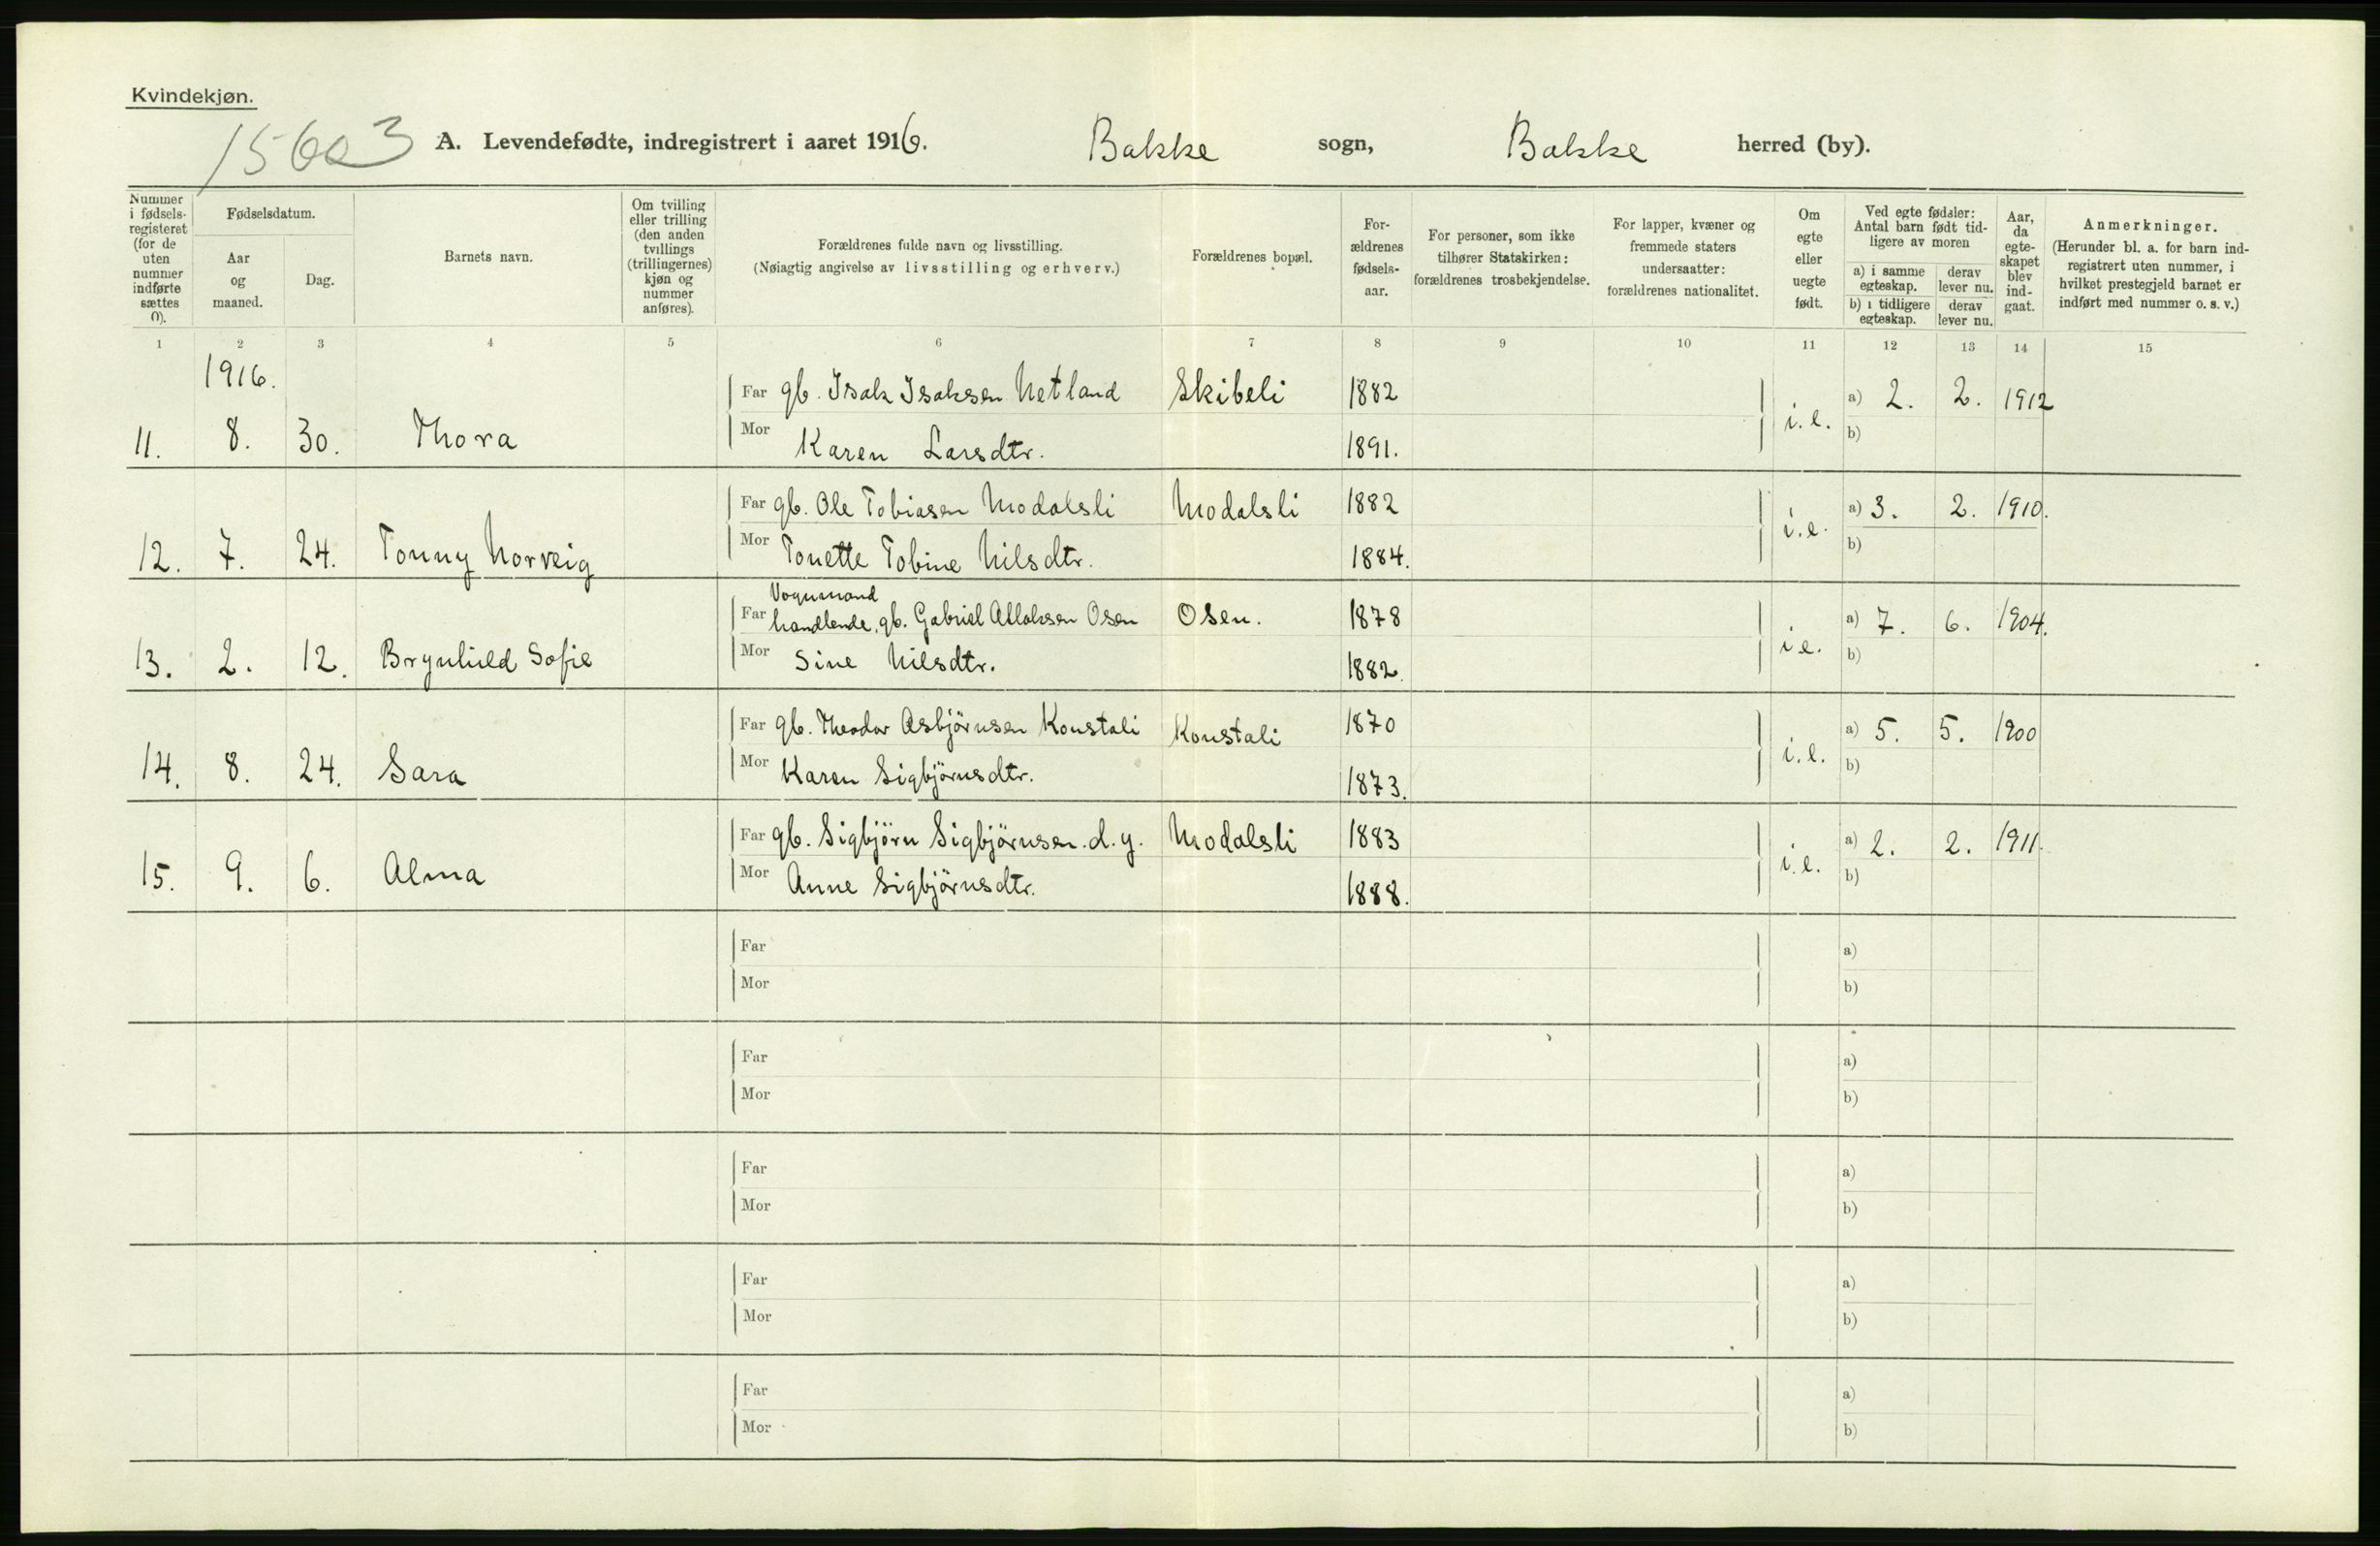 Kvindekjøn.
15603
A. Levendefødte, indregistrert i aaret 1916. Bakke sogn, Bakke herred (by).
Nummer i fødsels-registeret (for de uten nummer indførte sættes 0).
Fødselsdatum.
Aar og maaned.
Dag.
Barnets navn.
Om tvilling eller trilling (den anden tvillings (trillingernes) kjøn og nummer anføres).
Forældrenes fulde navn og livsstilling.
(Nøiagtig angivelse av livsstilling og erhverv.)
Forældrenes bopæl.
For-ældrenes fødsels-aar.
For personer, som ikke tilhører Statskirken: forældrenes trosbekjendelse.
For lapper, kvæner og fremmede staters undersaatter: forældrenes nationalitet.
Om egte eller uegte født.
Ved egte fødsler: Antal barn født tid-ligere av moren
a) i samme egteskap.
derav lever nu.
b) i tidligere egteskap.
derav lever nu.
Aar, da egte-skapet blev ind-gaat.
Anmerkninger.
(Herunder bl. a. for barn ind-registrert uten nummer, i hvilket prestegjeld barnet er indført med nummer o. s. v.)
1 2 3 4 5 6 7 8 9 10 11 12 13 14 15
1916.
Far gb. Isak Isaksen Netland Skibeli 1882 a) 2. 2. 1912
11. 8. 30. Thora Mor Karen Larsdtr. 1891. i.e. b)
Far gb. Ole Tobiasen Modalsli Modalsli 1882 a) 3. 2. 1910.
12. 7. 24. Tonny Norveig Mor Tonette Tobine Nilsdtr. 1884. i.e. b)
Vognmand
Far handlende, gb. Gabriel Aslaksen Osen Osen. 1878 a) 7. 6. 1904.
13. 2. 12. Brynhild Sofie Mor Sine Nilsdtr. 1882. i e. b)
Far gb. Theodor Asbjörnsen Konstali Konstali 1870 a) 5. 5. 1900
14. 8. 24. Sara Mor Karen Sigbjörnsdtr. 1873. i.e. b)
Far gb. Sigbjörn Sigbjörnsen. d. y. Modalsli 1883 a) 2. 2. 1911.
15. 9. 6. Alma Mor Anne Sigbjörnsdtr. 1888. i.e. b)
Far a)
Mor b)
Far a)
Mor b)
Far a)
Mor b)
Far a)
Mor b)
Far a)
Mor b)